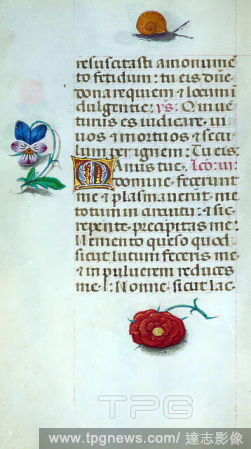 resuscitasti a monumen
to fetidum: tu eis dñe
dona requiem & locum i
dulgentie. v̄s. Qui ue
turus es iudicare. ui
uos & mortuos & secu
lum per ignem: Tu eis:
Manus tue. Lco: iii:
domine fecerunt
me & plasmauerunt me
totum in circuitu: & sic
repente precipitas me:
Memento queso quod
sicut lutum feceris me
& in puluerem reduces
me: Nonne sicut lac
TPG
www.tpgnews.com/達志影像